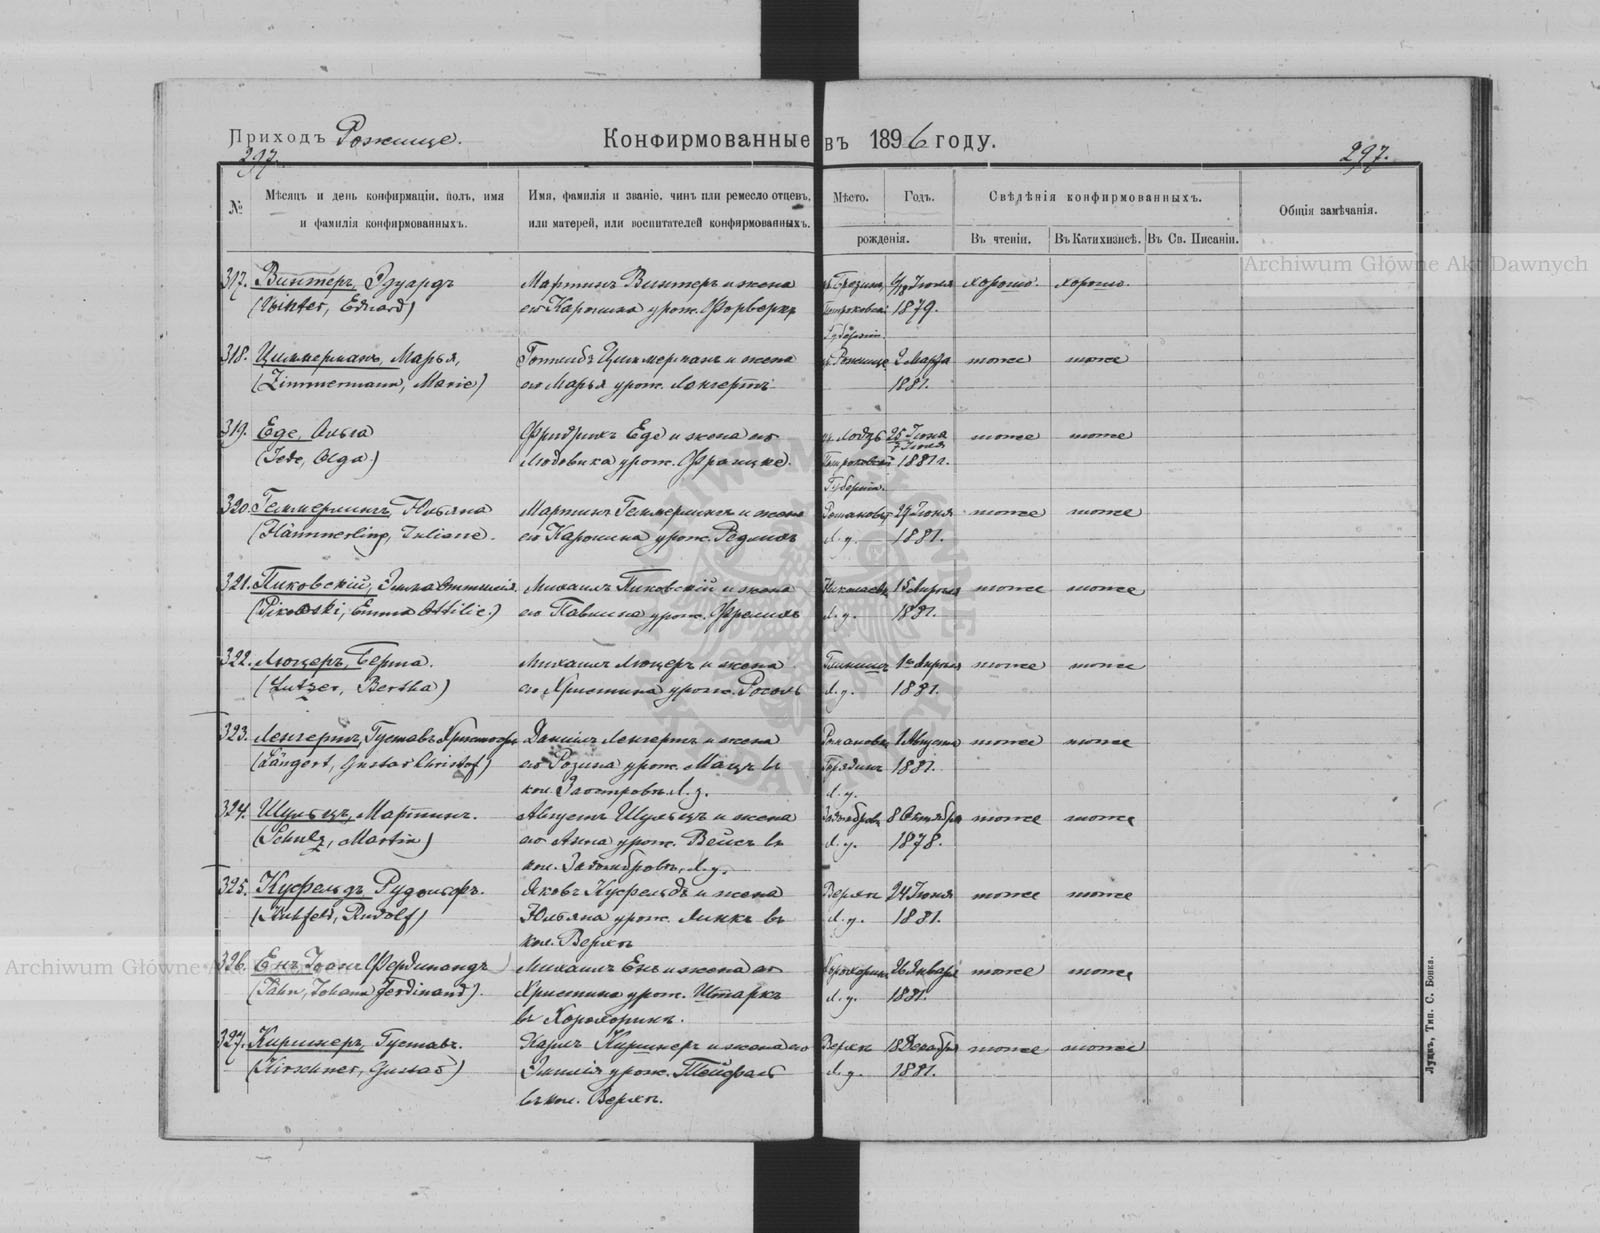 Приходъ Рожище.
Конфирмованные въ 1896 году.
297.
297.
№
Мѣсяцъ и день конфирмаціи, полъ, имя
и фамилія конфирмованныхъ.
Имя, фамилія и званіе, чинъ или ремесло отцевъ,
или матерей, или воспитателей конфирмованныхъ.
Мѣсто.
Годъ.
рожденія.
Свѣдѣнія конфирмованныхъ.
Въ чтеніи.
Въ Катихизисѣ.
Въ Св. Писаніи.
Общія замѣчанія.
317. Винтеръ, Эдуардъ Мартинъ Винтеръ и жена 6/18 Іюля хорошо. хорошо.
(Winter, Eduard) его Каролина урож. Форверкъ Петроковской 1879.
Губерніи
318. Циммерманъ, Марья, Готлибъ Циммерманъ и жена Рожище 2 Марта тоже тоже
(Zimmermann, Marie) его Марья урож. Ленгертъ 1881.
319. Еде, Ольга Фридрихъ Еде и жена его Лодзь 25 Іюня тоже тоже
(Jede, Olga) Людовика урож. Петроковской 1881 г.
Губерніи.
320. Геммерлингъ, Юльяна Мартинъ Геммерлингъ и жена 29 Іюня тоже тоже
(Hämmerling, Juliane). его Каролина урож. Редлихъ Л. у. 1881.
321. Пиковскій, Эмма Оттилія Михаилъ Пиковскій и жена тоже тоже
(Pikowski, Emma Ottilie.) его Павлина урож. Л. у. 1881.
322. Люцеръ, Берта. Михаилъ Люцеръ и жена тоже тоже
(Lutzer, Bertha) его Христина урож. Л. у. 1881.
323. Ленгертъ, Густавъ Христофъ Даніилъ Ленгертъ и жена 1 Августа тоже тоже
(Längert, Gustav Christof) его Розина урож. въ 1881.
кол. Л. у. Л. у.
324. Шульцъ, Мартинъ. Августъ Шульцъ и жена 8 Октября тоже тоже
(Schulz, Martin) его Анна урож. Вейсъ въ Л. у. 1878.
кол. Л. у.
325. Кусфельдъ Рудольфъ. Яковъ Кусфельдъ и жена 24 Іюня тоже тоже
(Kuhfeld, Rudolf) Юльяна урож. Линкъ въ Л. у. 1881.
кол.
326. Енъ, Іоанъ Фердинандъ Михаилъ Енъ и жена его 26 Января тоже тоже
(Jahn, Johann Ferdinand). Христина урож. Штаркъ Л. у. 1881.
въ
327. Киршнеръ, Густавъ. Карлъ Киршнеръ и жена его 18 Декабря тоже тоже
(Kirschner, Gustav) Эмилія урож. Л. у. 1881.
въ кол.
Луцкъ, Тип. С. Бонка.
Archiwum Główne Akt Dawnych
Archiwum Główne